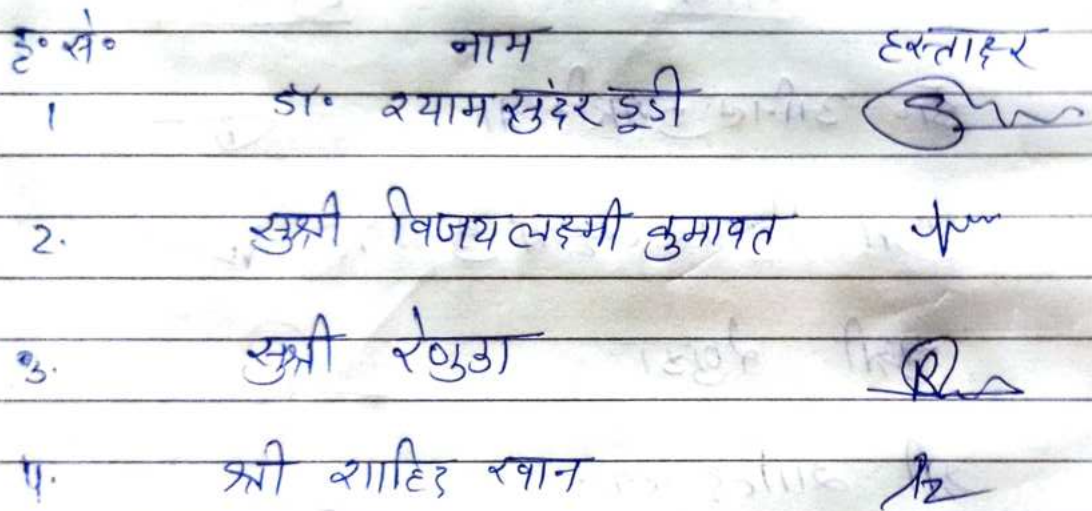 क्र॰ सं॰ नाम हस्ताक्षर
1 डॉ॰ श्याम सुंदर डूडी
2. सुश्री विजय लक्ष्मी कुमावत
3. सुश्री रेणुका
4. श्री शाहिद खान